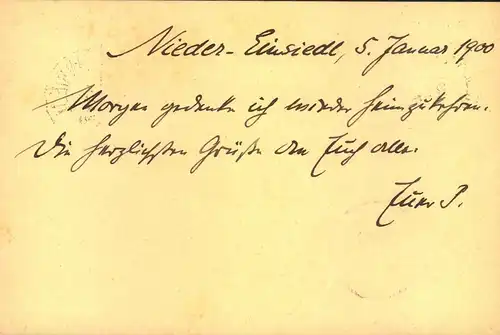 Nieder-Einsiedl, 5. Januar 1900
Morgen gedenke ich wieder heimzukehren.
Die herzlichsten Grüße an Euch alle.
Euer P.